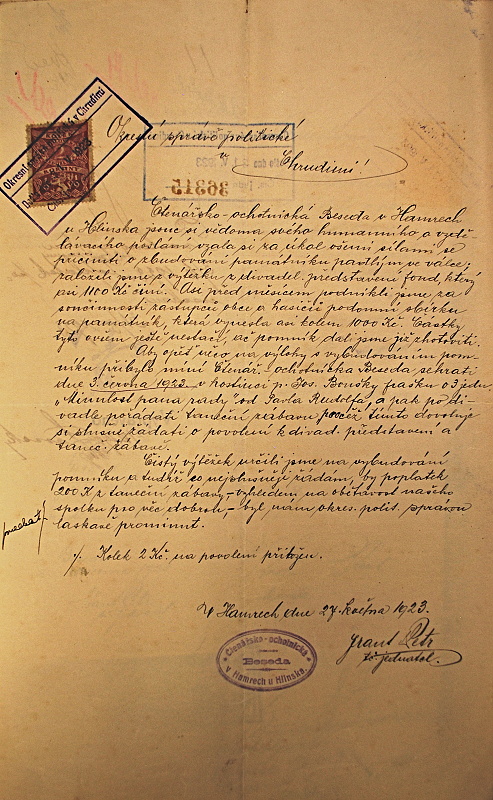 Okresní správě politické
v
Chrudimi!
Čtenářsko-ochotnická Beseda v Hamrech
u Hlinska jsouc si vědoma svého humanního a vzdě-
lávacího poslání vzala si za úkol všemi silami se
přičiniti o zbudování památníku padlým ve válce;
založili jsme z výtěžku z divadel. představení fond, který
asi 1100 Kč činí. Asi před měsícem podnikli jsme za
součinnosti zástupců obce a hasičů podomní sbírku
na památník, která vynesla asi kolem 1000 Kč. Částky
tyto ovšem ještě nestačí, ač pomník dali jsme již zhotoviti.
Aby opět něco na výlohy s vybudováním pom-
níku přibylo míní Čtenář. ochotnická Beseda sehráti
dne 3. června 1923 v hostinci p. Jos. Boušky frašku o 3 jedn.
"Minulost pana rady" od Pavla Rudolfa, a pak po di-
vadle pořádati taneční zábavu pročež tímto dovoluje
si slušně žádati o povolení k divad. představení a
taneč. zábavě.
Čistý výtěžek určili jsme na vybudování
pomníku a tudíž co nejslušněji žádám, by poplatek
200 K z taneční zábavy, - vzhledem na obětavost našeho
spolku pro věc dobrou, - byl nám okres. polit. správou
laskavě prominut.
/. Kolek 2 Kč. na povolení přiložen.
V Hamrech dne 27. května 1923.
Čtenářsko-ochotnická
Beseda
v Hamrech u Hlinska
Grant Petr
t.č. jednatel.
36315